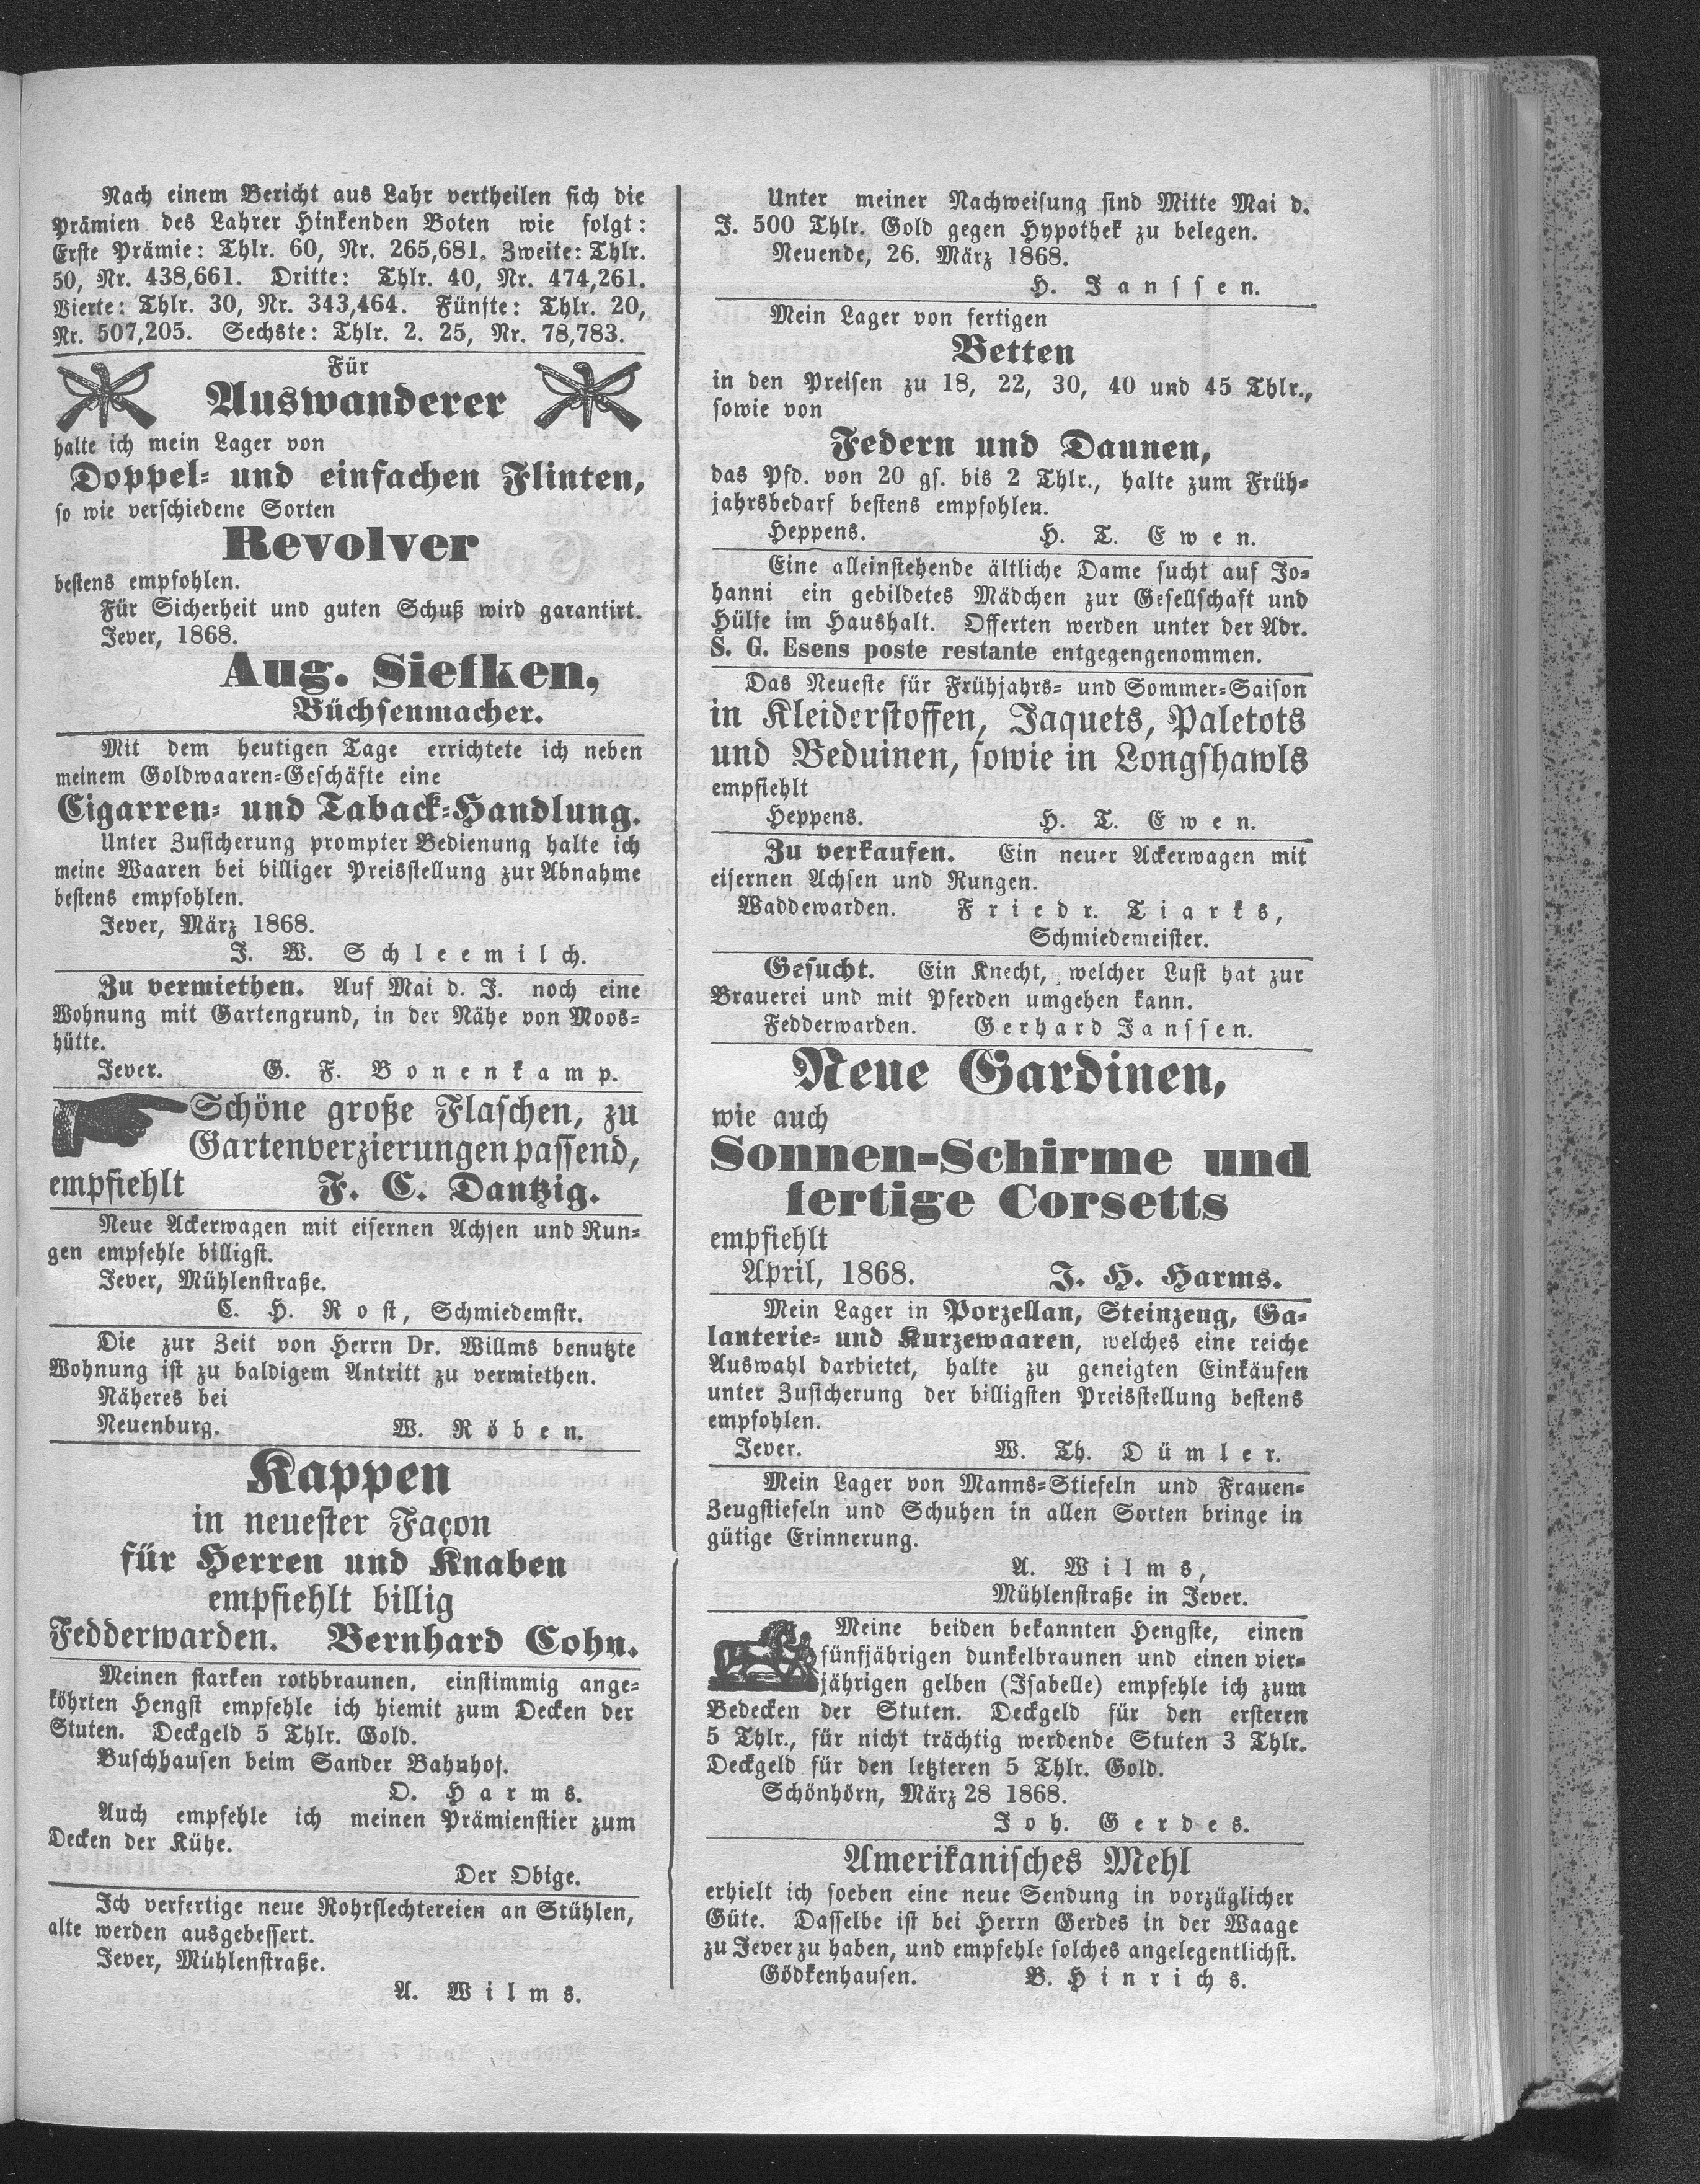 Nach einem Bericht aus Lahr vertheilen sich die
Prämien des Lahrer Hinkenden Boten wie folgt:
Erste Prämie: Thlr. 60, Nr. 265,681. Zweite: Thlr.
50, Nr. 438,661. Dritte: Thlr. 40, Nr. 474,261.
Vierte: Thlr. 30, Nr. 343,464. Fünfte: Thlr. 20,
Nr. 507,205. Sechste: Thlr. 2. 25, Nr. 78,783.
Für
Auswanderer
halte ich mein Lager von
Doppel- und einfachen Flinten,
so wie verschiedene Sorten
Revolver
bestens empfohlen.
Für Sicherheit und guten Schuß wird garantirt.
Jever, 1868.
Aug. Siefken,
Büchsenmacher.
Mit dem heutigen Tage errichtete ich neben
meinem Goldwaaren-Geschäfte eine
Cigarren- und Taback-Handlung.
Unter Zusicherung prompter Bedienung halte ich
meine Waaren bei billiger Preisstellung zur Abnahme
bestens empfohlen.
Jever, März 1868.
J. W. Schleemilch.
Zu vermiethen. Auf Mai d. J. noch eine
Wohnung mit Gartengrund, in der Nähe von Moos-
hütte.
Jever. G. F. Bonenkamp.
Schöne große Flaschen, zu
Gartenverzierungen passend,
empfiehlt F. C. Dantzig.
Neue Ackerwagen mit eisernen Achsen und Run-
gen empfehle billigst.
Jever, Mühlenstraße.
C. H. Rost, Schmiedemstr.
Die zur Zeit von Herrn Dr. Willms benutzte
Wohnung ist zu baldigem Antritt zu vermiethen.
Näheres bei
Neuenburg. W. Röben.
Kappen
in neuester Façon
für Herren und Knaben
empfiehlt billig
Fedderwarden. Bernhard Cohn.
Meinen starken rothbraunen, einstimmig ange-
köhrten Hengst empfehle ich hiemit zum Decken der
Stuten. Deckgeld 5 Thlr. Gold.
Buschhausen beim Sander Bahnhof.
O. Harms.
Auch empfehle ich meinen Prämienstier zum
Decken der Kühe.
Der Obige.
Ich verfertige neue Rohrflechtereien an Stühlen,
alte werden ausgebessert.
Jever, Mühlenstraße.
A. Wilms.
Unter meiner Nachweisung sind Mitte Mai d.
J. 500 Thlr. Gold gegen Hypothek zu belegen.
Neuende, 26. März 1868.
H. Janssen.
Mein Lager von fertigen
Betten
in den Preisen zu 18, 22, 30, 40 und 45 Thlr.,
sowie von
Federn und Daunen,
das Pfd. von 20 gs. bis 2 Thlr., halte zum Früh-
jahrsbedarf bestens empfohlen.
Heppens. H. T. Ewen.
Eine alleinstehende ältliche Dame sucht auf Jo-
hanni ein gebildetes Mädchen zur Gesellschaft und
Hülfe im Haushalt. Offerten werden unter der Adr.
S. G. Esens poste restante entgegengenommen.
Das Neueste für Frühjahrs- und Sommer-Saison
in Kleiderstoffen, Jaquets, Paletots
und Beduinen, sowie in Longshawls
empfiehlt
Heppens. H. T. Ewen.
Zu verkaufen. Ein neuer Ackerwagen mit
eisernen Achsen und Rungen.
Waddewarden. Friedr. Tiarks,
Schmiedemeister.
Gesucht. Ein Knecht, welcher Lust hat zur
Brauerei und mit Pferden umgehen kann.
Fedderwarden. Gerhard Janssen.
Neue Gardinen,
wie auch
Sonnen-Schirme und
fertige Corsetts
empfiehlt
April, 1868. J. H. Harms.
Mein Lager in Porzellan, Steinzeug, Ga-
lanterie- und Kurzewaaren, welches eine reiche
Auswahl darbietet, halte zu geneigten Einkäufen
unter Zusicherung der billigsten Preisstellung bestens
empfohlen.
Jever. W. Th. Dümler.
Mein Lager von Manns-Stiefeln und Frauen-
Zeugstiefeln und Schuhen in allen Sorten bringe in
gütige Erinnerung.
A. Wilms,
Mühlenstraße in Jever.
Meine beiden bekannten Hengste, einen
fünfjährigen dunkelbraunen und einen vier-
jährigen gelben (Isabelle) empfehle ich zum
Bedecken der Stuten. Deckgeld für den ersteren
5 Thlr., für nicht trächtig werdende Stuten 3 Thlr.
Deckgeld für den letzteren 5 Thlr. Gold.
Schönhörn, März 28 1868.
Joh. Gerdes.
Amerikanisches Mehl
erhielt ich soeben eine neue Sendung in vorzüglicher
Güte. Dasselbe ist bei Herrn Gerdes in der Waage
zu Jever zu haben, und empfehle solches angelegentlichst.
Gödkenhausen. B. Hinrichs.